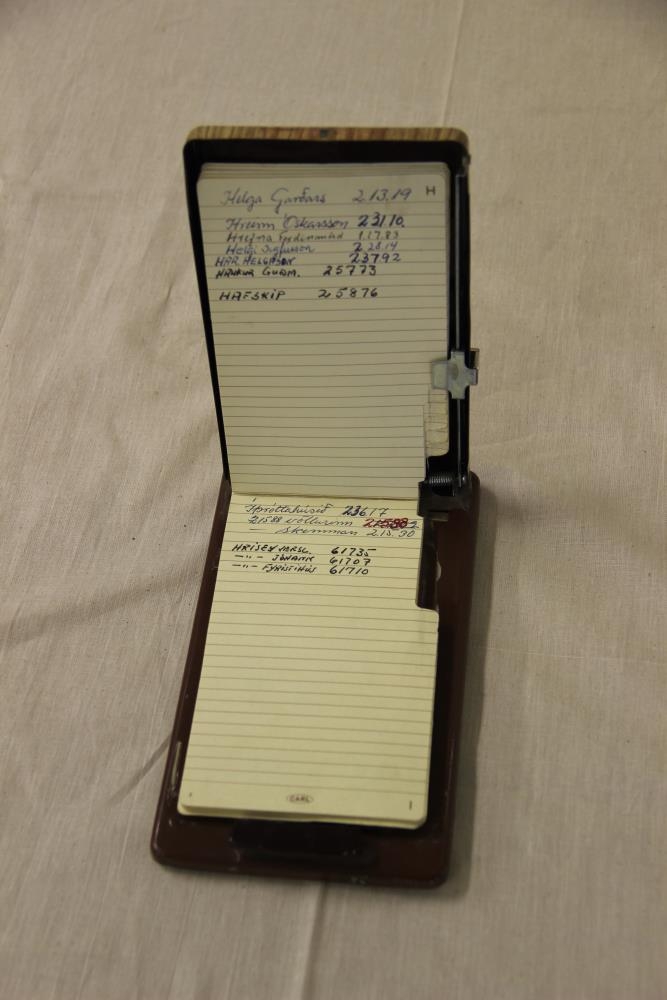 H
Helga Garðars 2.13.19
Hreinn Óskarsson 23110.
Hrefna Ferdinantsd 1.17.83
Helgi Sigfússon 2 28.14
HAR HELGASON 23792
HAUKUR GUÐM. 25773
HAFSKIP 25876
Íþróttahúsið 23617
21588 völlurinn
- Skemman 2.15.30
HRÍSEY VARSL. 61735
-"- JÓHANN 61707
-"- FYRSTIHÚS 61710
CARL
I